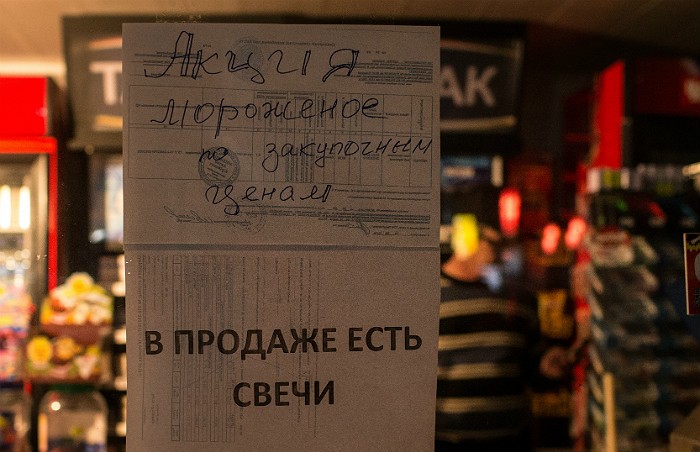 Акция
мороженое
по закупочным
ценам
В ПРОДАЖЕ ЕСТЬ
СВЕЧИ